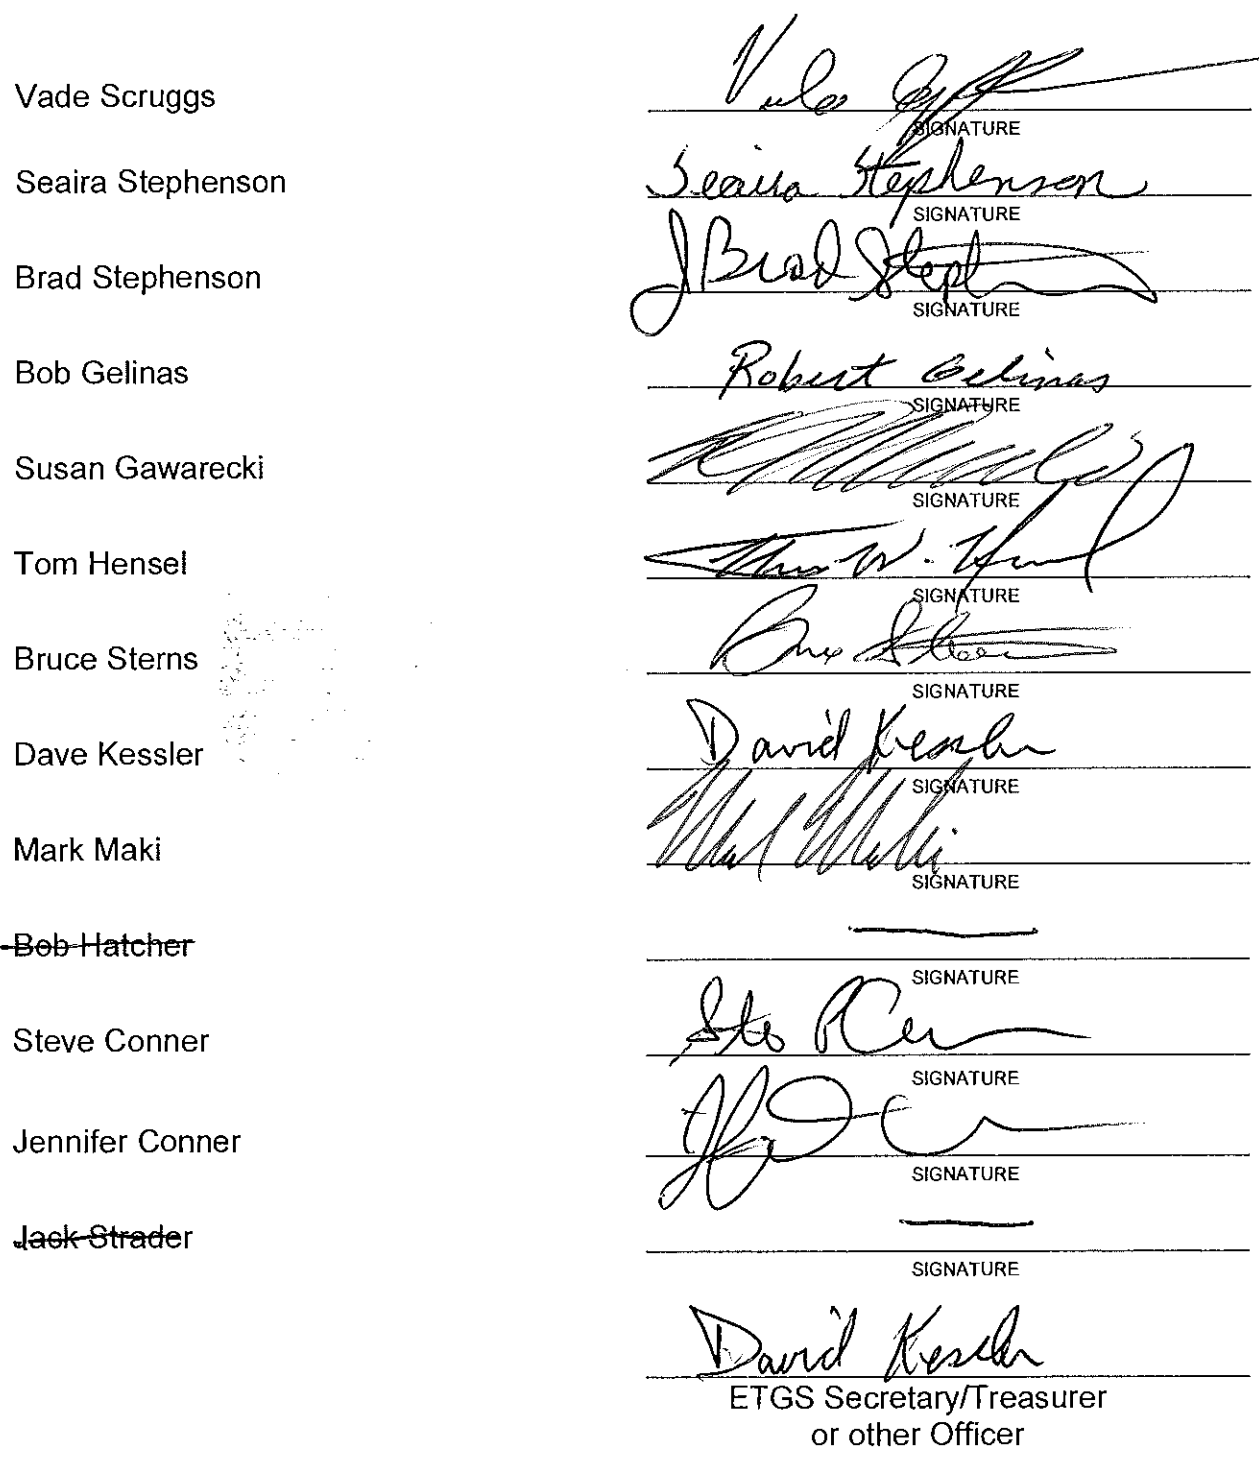 Vade Scruggs
SIGNATURE
Seaira Stephenson Seaira Stephenson
SIGNATURE
Brad Stephenson J Brad Steph
SIGNATURE
Bob Gelinas Robert Gelinas
SIGNATURE
Susan Gawarecki
SIGNATURE
Tom Hensel
SIGNATURE
Bruce Sterns Bruce
SIGNATURE
Dave Kessler David Kessler
SIGNATURE
Mark Maki Mark Maki
SIGNATURE
Bob Hatcher
SIGNATURE
Steve Conner
SIGNATURE
Jennifer Conner
SIGNATURE
Jack Strader
SIGNATURE
David Kessler
ETGS Secretary/Treasurer
or other Officer